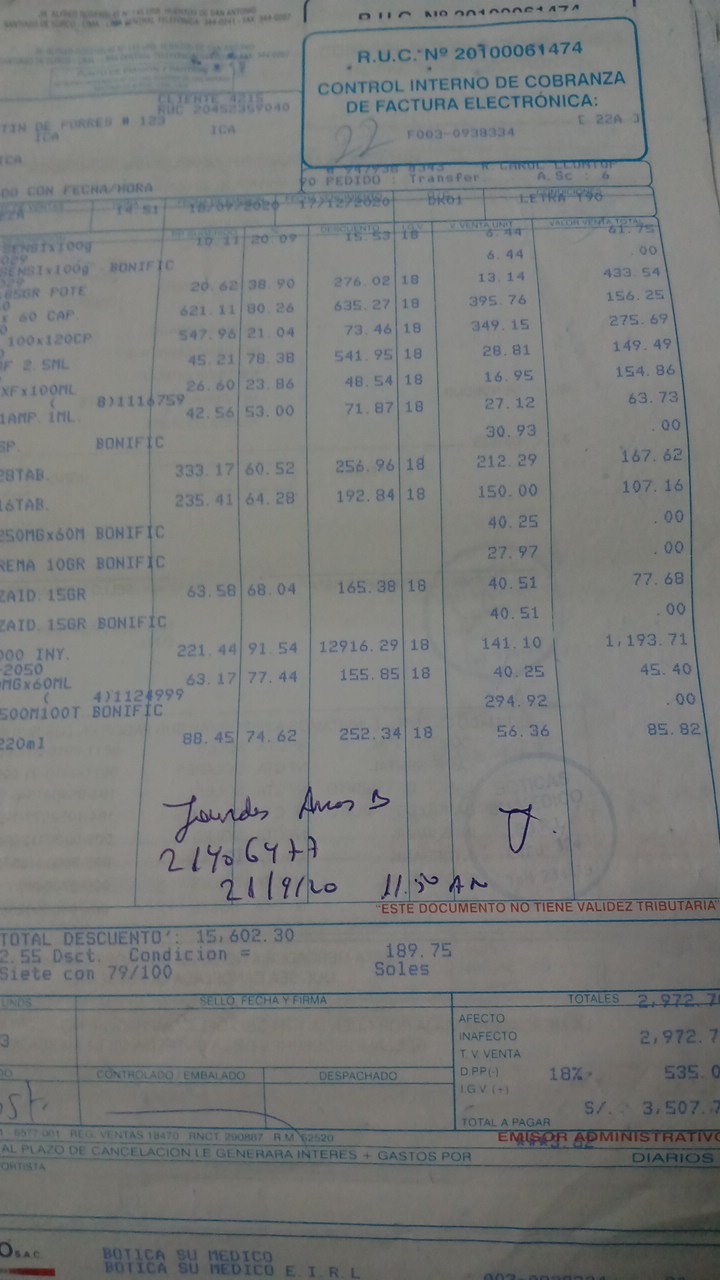 R.U.C. Nº 20100061474
R.U.C. Nº 20100061474
CONTROL INTERNO DE COBRANZA
DE FACTURA ELECTRÓNICA:
22
[ 22A ]
F003-0938334
CLIENTE 4215
RUC 20452359040
TIN DE PORRES # 123
ICA ICA
ICA
DO CON FECHA/HORA
PEDIDO : Transfer. A.Sc : 6
14 51 18/09/2020 17/12/2020 DK01 LETRA T90
DESCUENTO V. VENTA UNIT. VALOR VENTA TOTAL
SENSIx100g 10.11 20.09 15.53 18 6.44 61.75
SENSIx100g BONIFIC 6.44 .00
85GR POTE 20.62 38.90 276.02 18 13.14 433.54
x 60 CAP 621.11 80.26 635.27 18 395.76 156.25
100x120CP 547.96 21.04 73.46 18 349.15 275.69
F 2.5ML 45.21 78.38 541.95 18 28.81 149.49
XFx100ML 26.60 23.86 48.54 18 16.95 154.86
( 8)1116759
1AMP. 1ML. 42.56 53.00 71.87 18 27.12 63.73
SP. BONIFIC 30.93 .00
28TAB. 333.17 60.52 256.96 18 212.29 167.62
16TAB. 235.41 64.28 192.84 18 150.00 107.16
250MGx60M BONIFIC 40.25 .00
REMA 10GR BONIFIC 27.97 .00
ZAID 15GR 63.58 68.04 165.38 18 40.51 77.68
ZAID 15GR BONIFIC 40.51 .00
000 INY. 221.44 91.54 12916.29 18 141.10 1,193.71
-2050
MGx60ML 63.17 77.44 155.85 18 40.25 45.40
( 4)1124999
500M100T BONIFIC 294.92 .00
220ml 88.45 74.62 252.34 18 56.36 85.82
Lourdes
21406477
21/9/20 11:50 AM
"ESTE DOCUMENTO NO TIENE VALIDEZ TRIBUTARIA"
TOTAL DESCUENTO': 15,602.30
2.55 Dsct. Condicion = 189.75
Siete con 79/100 Soles
SELLO, FECHA Y FIRMA
TOTALES 2,972.7
AFECTO
INAFECTO 2,972.7
T. V. VENTA
D.PP(-) 18% 535.0
I.G.V. (+)
S/. 3,507.7
TOTAL A PAGAR
CONTROLADO / EMBALADO DESPACHADO
REG. VENTAS 18470 RNCT. 290887 R.M. 62520
EMISOR ADMINISTRATIVO
AL PLAZO DE CANCELACION LE GENERARA INTERES + GASTOS POR DIARIOS
PORTISTA
O S.A.C.
BOTICA SU MEDICO
BOTICA SU MEDICO E.I.R.L